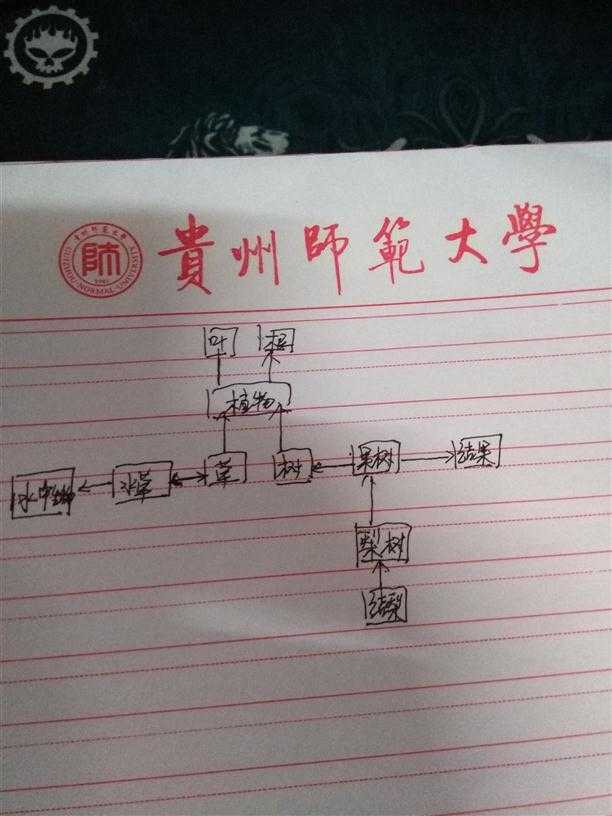 貴州師範大學
貴州師范大學
师
GUIZHOU·NORMAL·UNIVERSITY
1941
叶 根
植物
水中生 水草 草 树 果树 结果
梨树
结梨